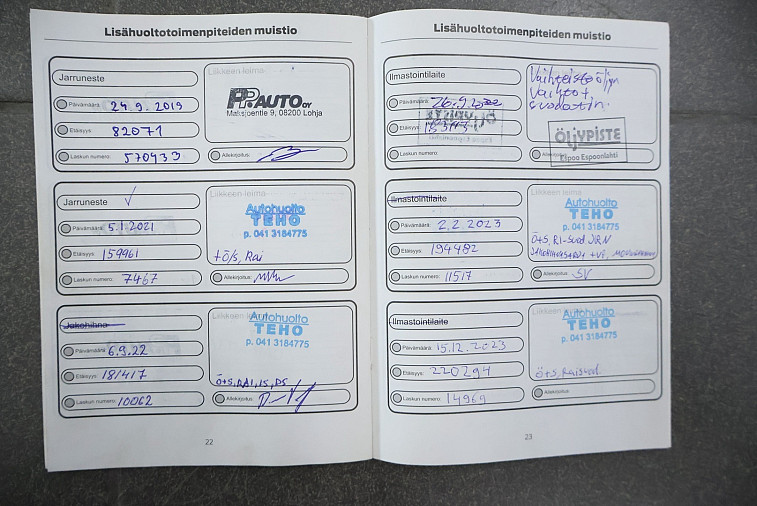 Lisähuoltotoimenpiteiden muistio
Jarruneste
Liikkeen leima
Päivämäärä: 24.9.2019
PP.AUTO OY
Maksjoentie 9, 08200 Lohja
Etäisyys: 82071
Laskun numero: 570433
Allekirjoitus:
Jarruneste
Liikkeen leima
Autohuolto
TEHO
p. 041 3184775
Päivämäärä: 5.1.2021
Etäisyys: 159961
+ö/s, Rai
Laskun numero: 7467
Allekirjoitus:
Jakohihna
Liikkeen leima
Autohuolto
TEHO
p. 041 3184775
Päivämäärä: 6.9.22
Etäisyys: 181417
Ö+S, RAI, IS, PS
Laskun numero: 10062
Allekirjoitus:
22
Lisähuoltotoimenpiteiden muistio
Ilmastointilaite
Liikkeen leima
Vaihteistoöljyn
vaihto +
suodatin.
Päivämäärä: 26.9.2022
Etäisyys:
ÖLJYPISTE
Espoo Espoonlahti
Laskun numero:
Ilmastointilaite
Liikkeen leima
Autohuolto
TEHO
p. 041 3184775
Päivämäärä: 2.2.2023
Etäisyys: 194482
Laskun numero: 11517
Allekirjoitus: SV
Ilmastointilaite
Autohuolto
TEHO
p. 041 3184775
Päivämäärä: 15.12.2023
Etäisyys: 220294
Ö+S, Raisuod.
Laskun numero: 14969
Allekirjoitus:
23